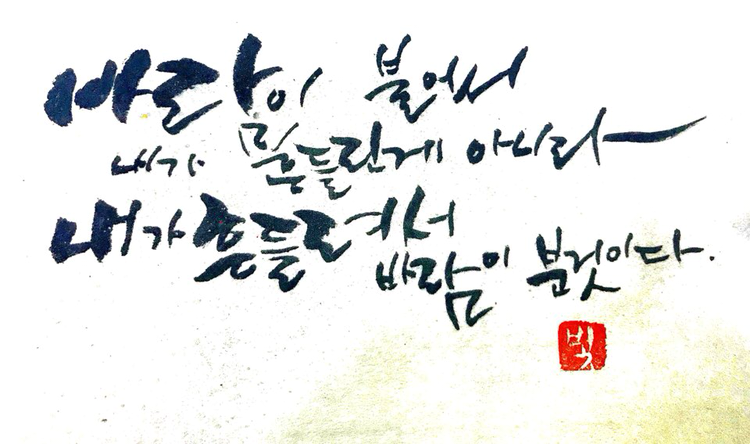 바람이 불어서
내가 흔들린게 아니라
내가 흔들려서
바람이 분것이다.
빛